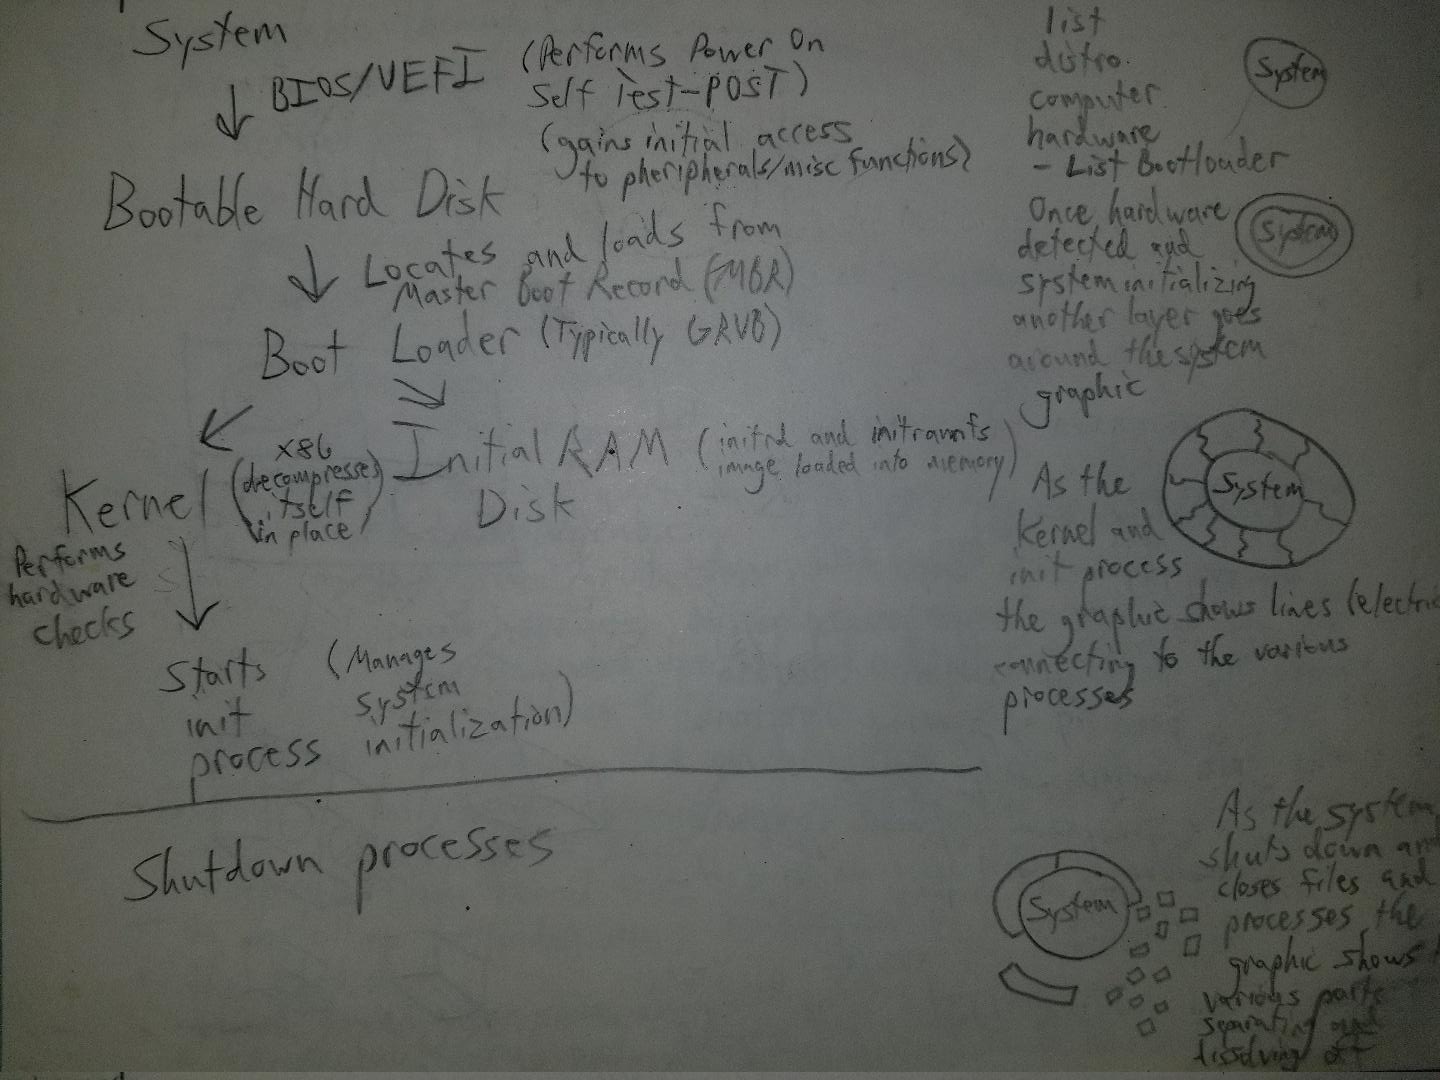 System
BIOS/UEFI (Performs Power On
Self Test-POST)
(gains initial access
to pheripherals/misc functions)
Bootable Hard Disk
Locates and loads from
Master Boot Record (MBR)
Boot Loader (Typically GRUB)
Kernel (x86
decompresses
itself
in place)
Initial RAM (initrd and initramfs
image loaded into memory)
Disk
Performs
hardware
checks
Starts (Manages
init system
process initialization)
Shutdown processes
list
distro.
computer
hardware
- List Bootloader
System
Once hardware
detected and
system initializing
another layer goes
around the system
graphic
System
As the
Kernel and
init process
the graphic shows lines (electric
connecting to the various
processes
System
As the system
shuts down an
closes files and
processes, the
graphic shows
various parts
separating and
dissolving off
System